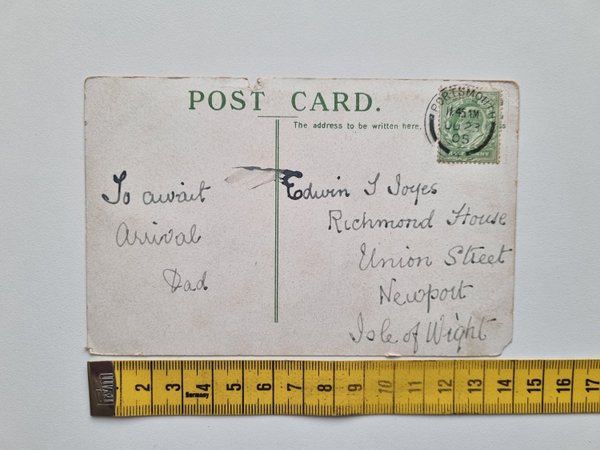 POST CARD.
The address to be written here.
PORTSMOUTH
11.45 AM
05
To await
Arrival
Dad
Edwin J Joyes
Richmond House
Union Street
Newport
Isle of Wight
2 3 4 5 6 7 8 9 10 11 12 13 14 15 16 17
Germany